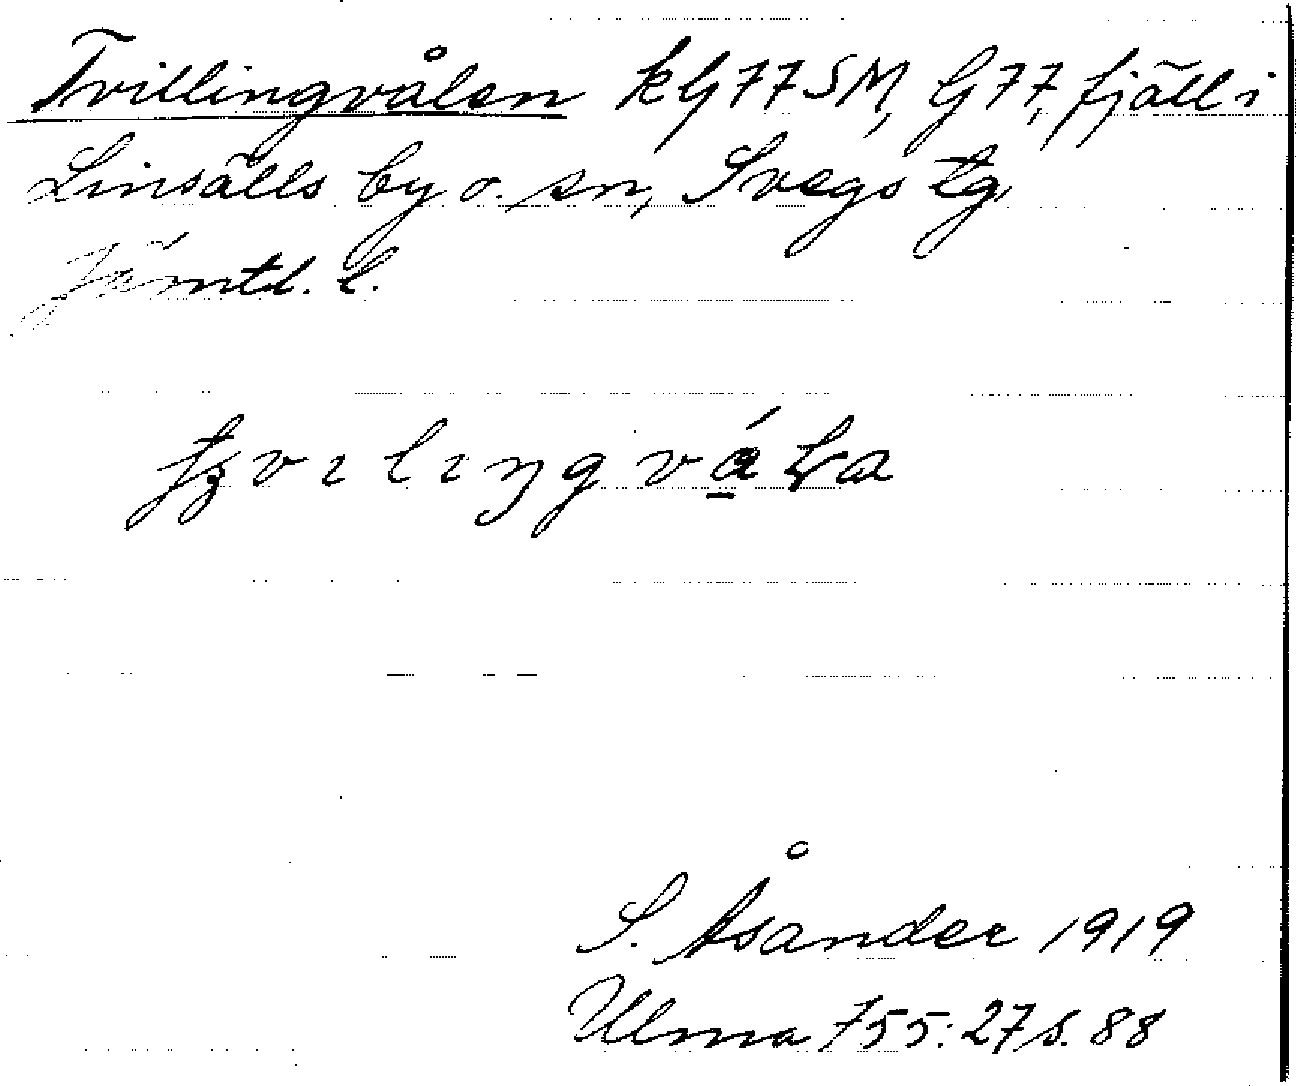 Tvillingvålen kG77SM, G77, fjäll i
Linsälls by o. sn, Svegs tg
Jämtl. l.
S. Åsander 1919
Ulma 755:27 s. 88